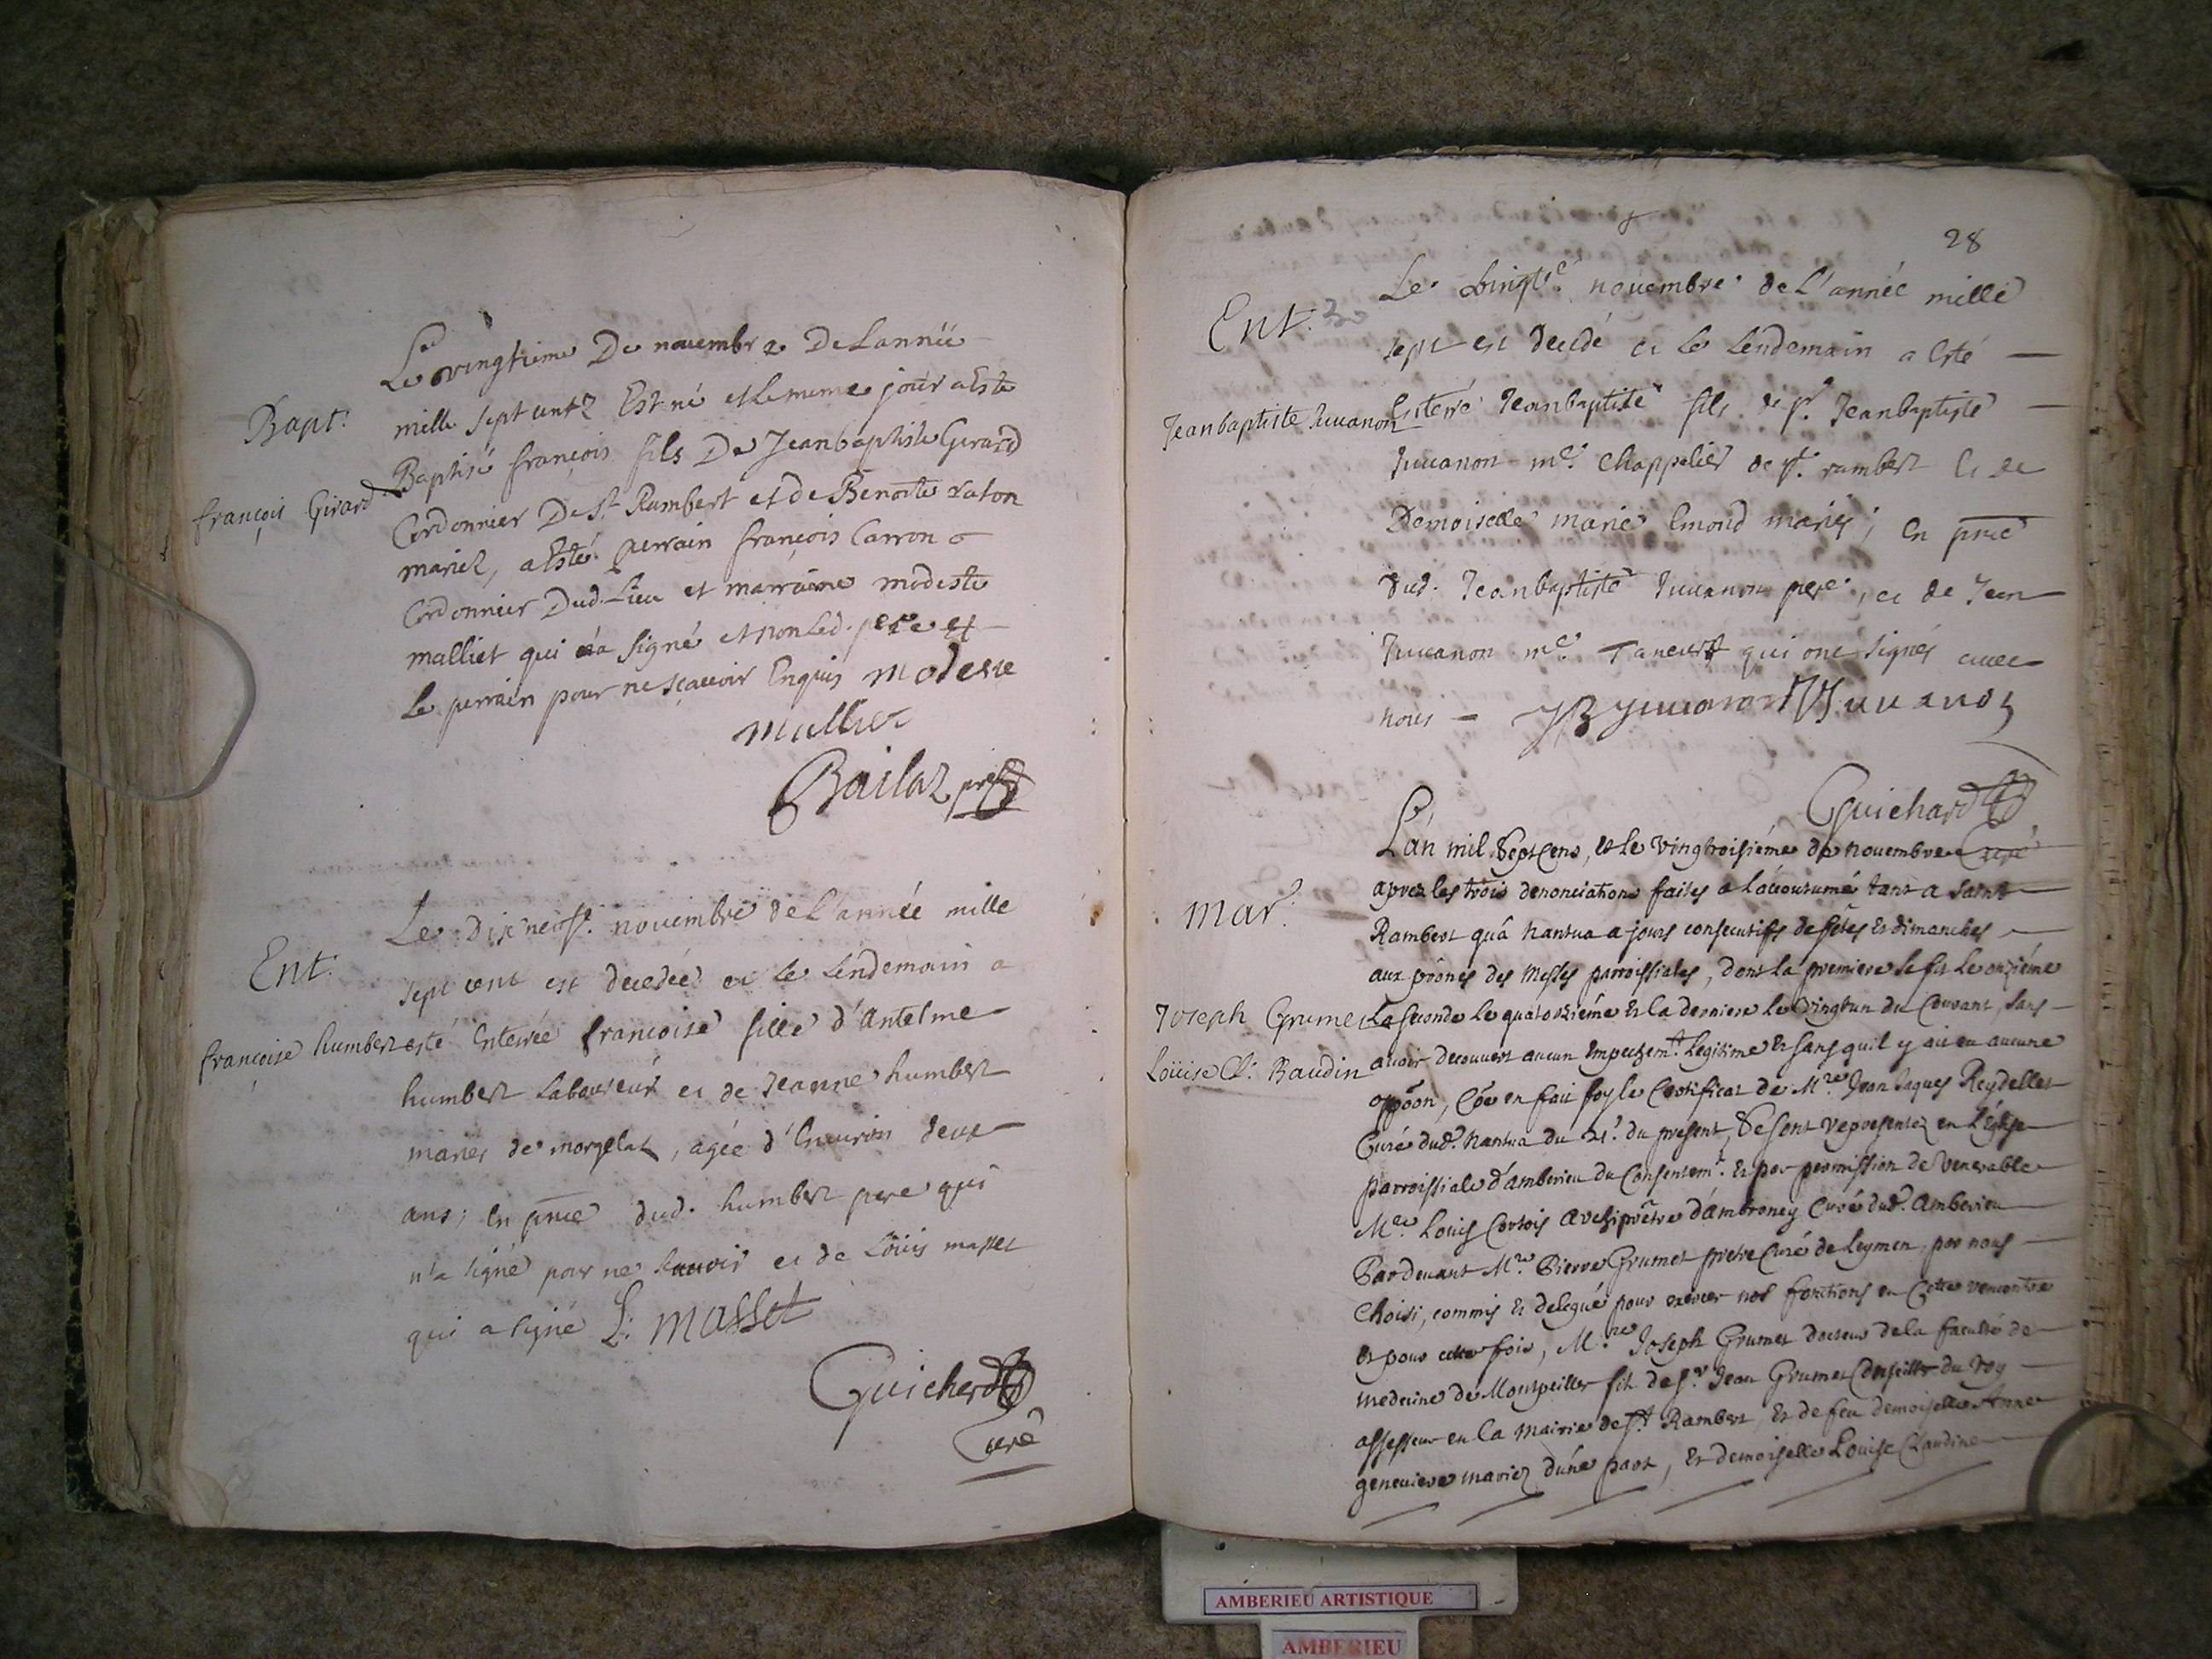 Le vingtieme De novembre De Lannéé
Bapt:
mille sept centz Est né et le meme jour a Este
françois Girard
Baptisé françois fils De Jeanbaptiste Girard
Cordonnier De St Rambert et de Benoite raton
mariez, a Esté perrain françois Carron
Cordonnier Dud. Lieu et marraine modeste
malliet qui a signé et non Led. pere et
Le perrain pour ne sçavoir Enquis modeste
mallier
Bailaz
Le Dix neuf. novembre de L'année mille
Ent.
sept cent est decedée et le Lendemain a
françoise humbert
esté Enterrée francoise fille d'Antelme
humbert Laboureur et de Jeanne humbert
mariés de morgelat, agée d'Environ deux
ans; En pnce dud. humbert pere qui
n'a signé pour ne scavoir et de Loüis masset
qui a signé L: masset
Guichard
Curé
28
Le vingte. novembre de L'année mille
Ent.
sept est decedé et Le Lendemain a Esté
Jeanbaptiste Juuanon
Enterré Jeanbaptiste fils de sr. Jeanbaptiste
Juuanon me. Chappelier de st. rambert Et de
Demoiselle marie Emond mariés; En pnce
dud. Jeanbaptiste Juuanon pere, et de Jean
Juuanon me. Taneur qui ont signés avec
nous - JB Juuanon Juuanon
Guichard
Curé
L'an mil sept cens, et le vingtroisiéme de novembre
apres les trois denonciations faites a l'accoutumé tant a saint
mar.
Rambert qu'â Nantua a jours consecutifs de fêtes et dimanches
aux prônes des Messes parroissiales, dont la premiere se fit le onziéme
Joseph Grumet
La seconde le quatorziéme et la derniere le vingtun du Courant, sans
Loüise Cl. Baudin
avoir decouvert aucun Empechemt. Legitime et sans quil y ait eu aucune
oppõon, Cõe en fait foy le Certificat de Mre. Jean Jaques Reydellet
Curé dud. Nantua du 21. du present, se sont representez en l'Eglise
parroissiale d'amberieu du Consentemt. et par permission de Venerable
Mre. Louis Cortois archiprêtre d'ambroney Curé dud. Amberieu
Pardevant Mre. Pierre Grumet pretre Curé de Leymen, par nous
Choisi, commis et delegué pour exercer nos fonctions en Cette rencontre
et pour cette fois, Mre. Joseph Grumet docteur de la faculté de
medecine de Montpeiller fils de sr. Jean Grumet Conseiller du roy
assesseur en la mairie de st. Rambert, et de feu demoiselle Anne
genevieve mariez d'une part, et demoiselle Louise Claudine
AMBERIEU ARTISTIQUE
AMBERIEU